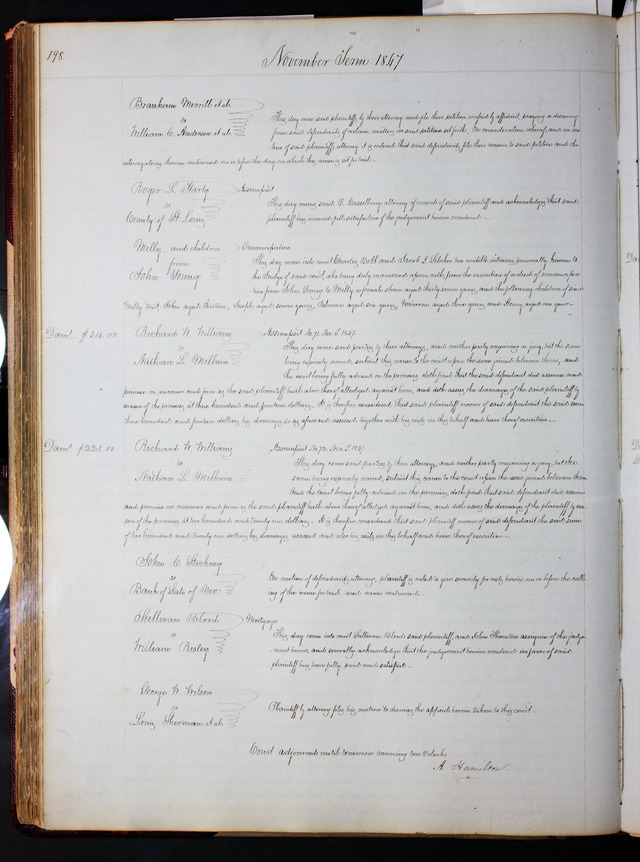 198
November Term 1847
Branham Merrill et als
vs
William C. Anderson et als
This day come said plaintiffs by their attorney and file their petition verified by affidavit, praying a discovery
from said defendants of certain matters in said petition set forth. On consideration whereof, and on mo-
tion of said plaintiffs attorney it is ordered that said defendants file their answer to said petition and
interrogatories therein contained on or before the day on which this cause is set for trial.
Roger D.
vs
County of St. Louis
Assumpsit
This day comes said C. attorney of record of said plaintiff and acknowledges that said
plaintiff has received full satisfaction of the judgment herein rendered.
Milly, and children
from
John Young
Emancipation
This day come into court Charles Bobb and Jacob S. two credible witnesses personally known to
the Judge of said court, who being duly examined upon oath prove the execution of a deed of emancipa-
tion from John Young to Milly a female slave aged thirty seven years, and the following children of said
Milly, to wit, John aged thirteen, Joseph aged seven years, Rebecca aged six years, aged three years and Henry aged one year.
Dam. $314.00
Richard W. Williams
vs
Nathan L. Milburn
Assumpsit No 71. Nov. T. 1847.
This day come said parties by their attorneys, and neither party requiring a jury, but the same
being expressly waived, submit this cause to the court upon the issue joined between them, and
the court being fully advised in the premises, doth find that the said defendant did assume and
promise in manner and form as the said plaintiff hath above thereof alleged against him, and doth assess the damages of the said plaintiff by
reason of the premises at three hundred and fourteen dollars. It is therefore considered that said plaintiff recover of said defendant the said sum
three hundred and fourteen dollars his damages so as aforesaid assessed together with his costs in this behalf and have thereof execution.
Dam. $221.00
Richard W. Williams
vs
Nathan L. Milburn
Assumpsit No 72. Nov. T. 1847
This day come said parties by their attorneys, and neither party requiring a jury, but the
same being expressly waived, submit this cause to the court upon the issue joined between them
And the court being fully advised in the premises, doth find that the said defendant did assume
and promise in manner and form as the said plaintiff hath above thereof alleged against him, and doth assess the damages of the plaintiff by rea-
son of the premises at two hundred and twenty one dollars. It is therefore considered that said plaintiff recover of said defendant the said sum
of two hundred and twenty one dollars his damages assessed and also his costs in this behalf and have thereof execution.
John C. Stickney
vs
Bank of State of Mo.
On motion of defendants attorney, plaintiff is ruled to give security for costs herein on or before the call-
ing of the cause for trial and cause continued.
Sullivan Blood
vs
William Risley
Mortgage
This day come into court Sullivan Blood said plaintiff, and John Thornton assignee of the judge-
ment herein, and severally acknowledge that the judgement herein rendered in favor of said
plaintiff has been fully paid and satisfied.
George W. Wilson
vs
Louis Sherman et als
Plaintiff by attorney files his motion to dismiss the appeal herein taken to this court.
Court adjourned until tomorrow morning ten Oclock
A. Hamilton